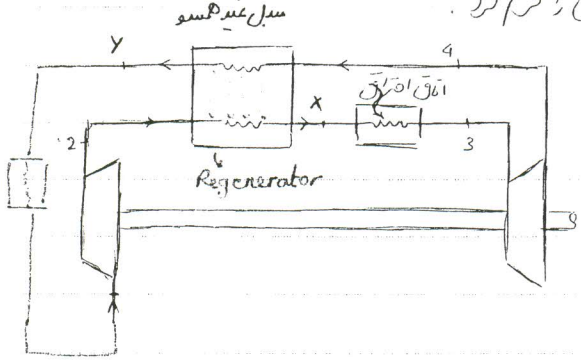 را گرم کرد.
مبدل غیر همسو
Y
4
اتاق احتراق
X
2
3
Regenerator